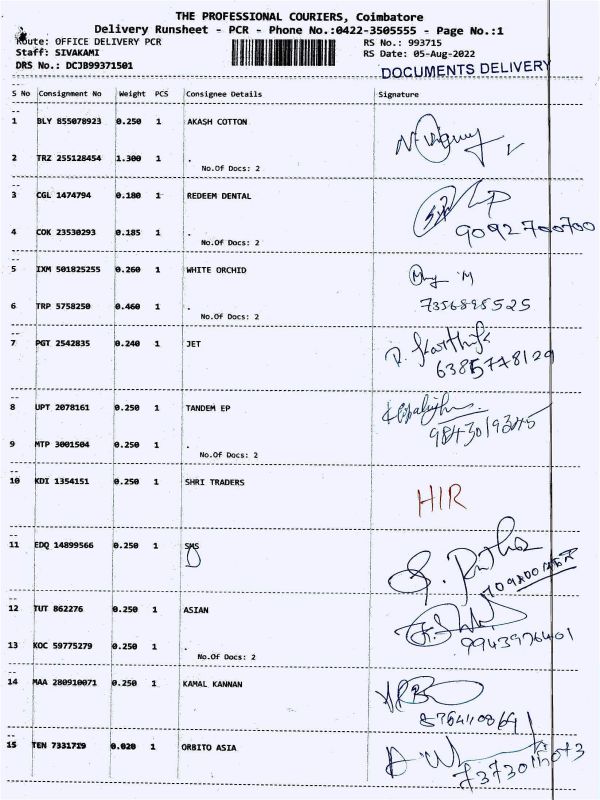 THE PROFESSIONAL COURIERS, Coimbatore
Delivery Runsheet - PCR - Phone No.:0422-3505555 - Page No.:1
Route: OFFICE DELIVERY PCR RS No.: 993715
Staff: SIVAKAMI RS Date: 05-Aug-2022
DRS No.: DCJB99371501
DOCUMENTS DELIVERY
S No Consignment No Weight PCS Consignee Details Signature
1 BLY 855078923 0.250 1 AKASH COTTON
2 TRZ 255128454 1.300 1 .
No.Of Docs: 2
3 CGL 1474794 0.180 1 REDEEM DENTAL
4 COK 23530293 0.185 1 .
9092700700
No.Of Docs: 2
5 IXM 501825255 0.260 1 WHITE ORCHID
6 TRP 5758250 0.460 1 .
7356895525
No.Of Docs: 2
7 PGT 2542835 0.240 1 JET
R. Karthik
6385778129
8 UPT 2078161 0.250 1 TANDEM EP
9843019345
9 MTP 3001504 0.250 1 .
No.Of Docs: 2
10 KDI 1354151 0.250 1 SHRI TRADERS
HIR
11 EDQ 14899566 0.250 1 SMS
12 TUT 862276 0.250 1 ASIAN
9943976401
13 KOC 59775279 0.250 1 .
No.Of Docs: 2
14 MAA 280910071 0.250 1 KAMAL KANNAN
15 TEN 7331719 0.020 1 ORBITO ASIA